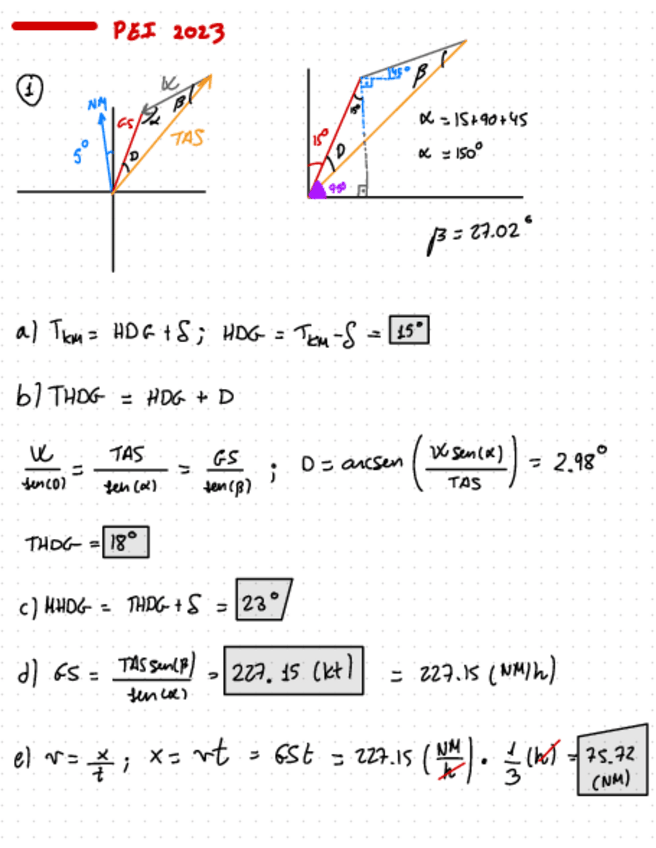 PEI 2023
1
NM
5°
GS
D
α
W
β
TAS
15°
D
45°
β
α = 15+90+45
α = 150°
β = 27.02°
a) TKM = HDG + δ; HDG = TKM - δ = 15°
b) THDG = HDG + D
W/sen(D) = TAS/sen(α) = GS/sen(β) ; D = arcsen (W sen(α)/TAS) = 2.98°
THDG = 18°
c) MHDG = THDG + δ = 23°
d) GS = TAS sen(β)/sen(α) = 227.15 (kt) = 227.15 (NM/h)
e) v = x/t ; x = vt = GSt = 227.15 (NM/h) · 1/3 (h) = 75.72 (NM)